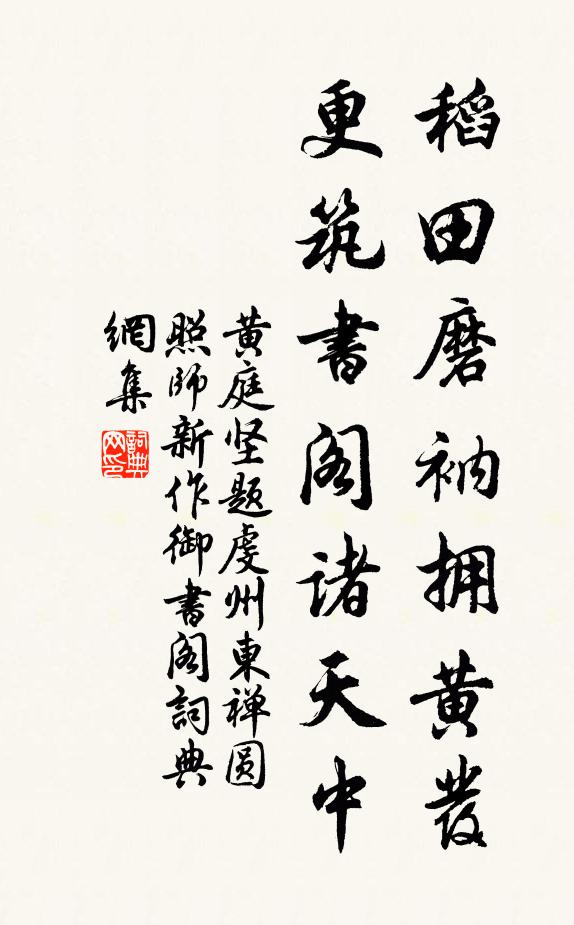 稻田磨衲拥黄發
更筑書阁诸天中
黄庭坚题虔州東禅圆
照师新作御書阁詞典
網集
詞典
网印